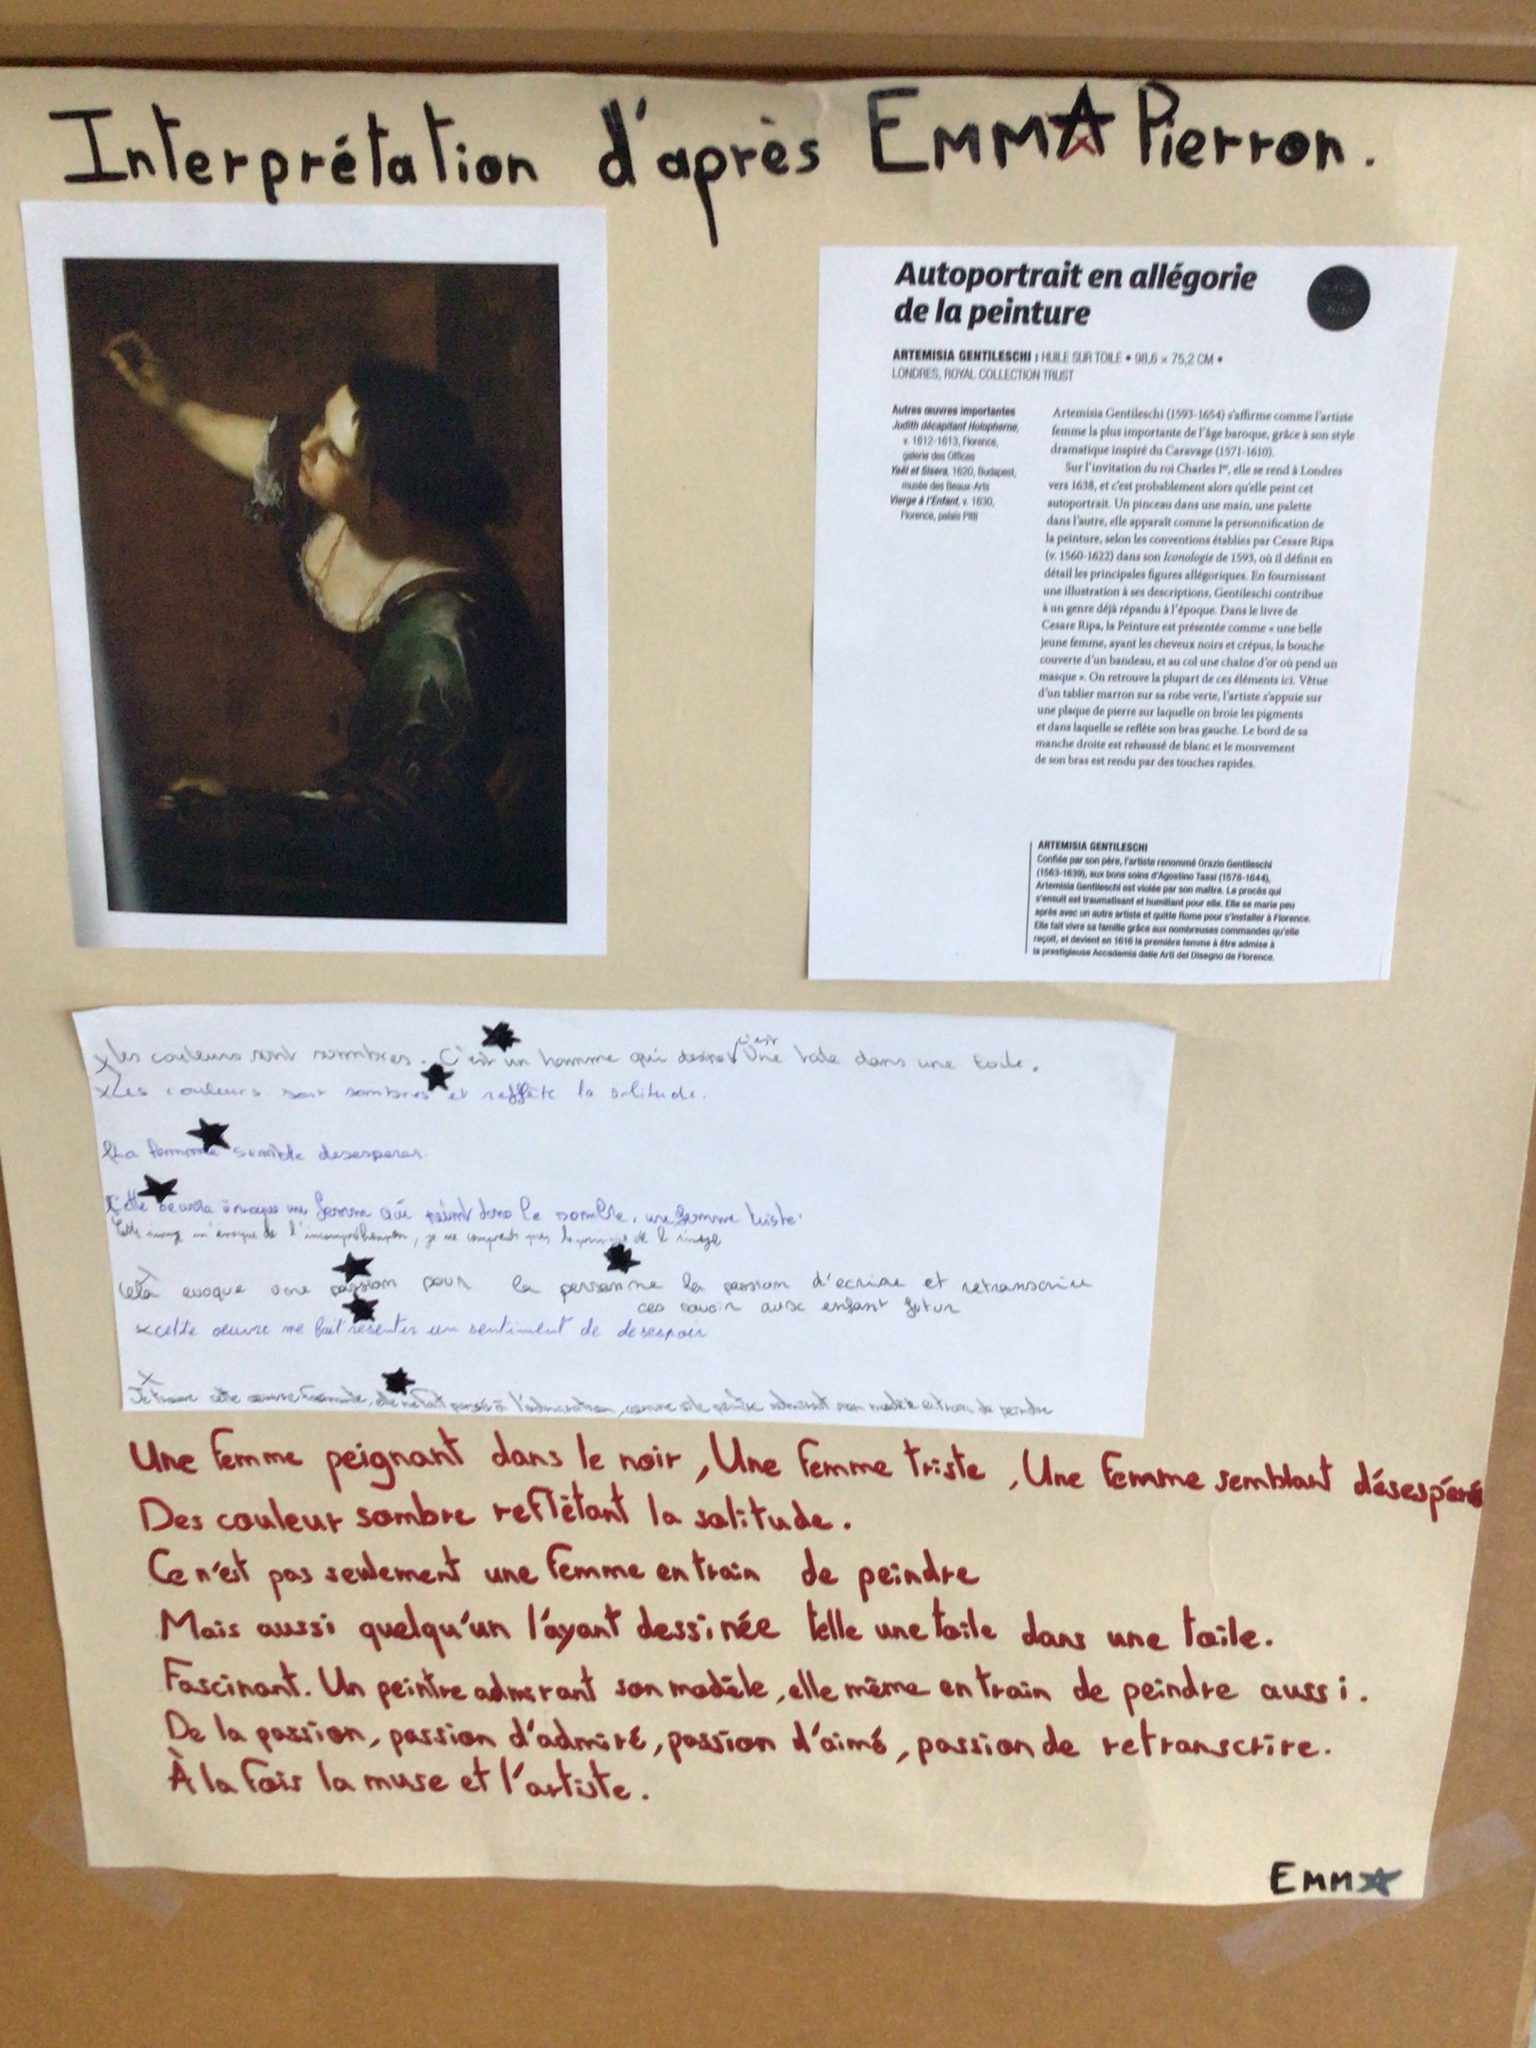 Interprétation d'après EMMA Pierron.
Autoportrait en allégorie
de la peinture
ARTEMISIA GENTILESCHI | HUILE SUR TOILE • 98,6 × 75,2 CM •
LONDRES, ROYAL COLLECTION TRUST
Autres œuvres importantes
Judith décapitant Holopherne,
v. 1612-1613, Florence,
galerie des Offices
Yaël et Sisera, 1620, Budapest,
musée des Beaux-Arts
Vierge à l'Enfant, v. 1630,
Florence, palais Pitti
Artemisia Gentileschi (1593-1654) s'affirme comme l'artiste
femme la plus importante de l'âge baroque, grâce à son style
dramatique inspiré du Caravage (1571-1610).
Sur l'invitation du roi Charles Ier, elle se rend à Londres
vers 1638, et c'est probablement alors qu'elle peint cet
autoportrait. Un pinceau dans une main, une palette
dans l'autre, elle apparaît comme la personnification de
la peinture, selon les conventions établies par Cesare Ripa
(v. 1560-1622) dans son Iconologie de 1593, où il définit en
détail les principales figures allégoriques. En fournissant
une illustration à ses descriptions, Gentileschi contribue
à un genre déjà répandu à l'époque. Dans le livre de
Cesare Ripa, la Peinture est présentée comme « une belle
jeune femme, ayant les cheveux noirs et crépus, la bouche
couverte d'un bandeau, et au col une chaîne d'or où pend un
masque ». On retrouve la plupart de ces éléments ici. Vêtue
d'un tablier marron sur sa robe verte, l'artiste s'appuie sur
une plaque de pierre sur laquelle on broie les pigments
et dans laquelle se reflète son bras gauche. Le bord de sa
manche droite est rehaussé de blanc et le mouvement
de son bras est rendu par des touches rapides.
ARTEMISIA GENTILESCHI
Confiée par son père, l'artiste renommé Orazio Gentileschi
(1563-1639), aux bons soins d'Agostino Tassi (1578-1644),
Artemisia Gentileschi est violée par son maître. Le procès qui
s'ensuit est traumatisant et humiliant pour elle. Elle se marie peu
après avec un autre artiste et quitte Rome pour s'installer à Florence.
Elle fait vivre sa famille grâce aux nombreuses commandes qu'elle
reçoit, et devient en 1616 la première femme à être admise à
la prestigieuse Accademia delle Arti del Disegno de Florence.
Les couleurs sont sombres. C'est un homme qui dessine c'est une toile dans une toile.
Les couleurs sont sombres et reffète la solitude.
La femme semble desesperer.
Cette oeuvre évoque une femme qui peint dans le sombre, une femme triste.
Cette image m'évoque de l'incompréhension, je ne comprends pas de l'image
Celà evoque une passion pour la personne la passion d'ecrire et retranscrire
ces savoir aux enfant futur
cette oeuvre me fait résentir un sentiment de desespoir
Je trouve cette oeuvre , elle me fait pensé à l'admiration, comme si le peintre admirait son modèle en train de peindre
Une femme peignant dans le noir, Une femme triste, Une femme semblant désespéré
Des couleur sombre reflètant la solitude.
Ce n'est pas seulement une femme en train de peindre
Mais aussi quelqu'un l'ayant dessinée telle une toile dans une toile.
Fascinant. Un peintre admirant son modèle, elle même en train de peindre aussi.
De la passion, passion d'admiré, passion d'aimé, passion de retranscrire.
À la fois la muse et l'artiste.
EMMA